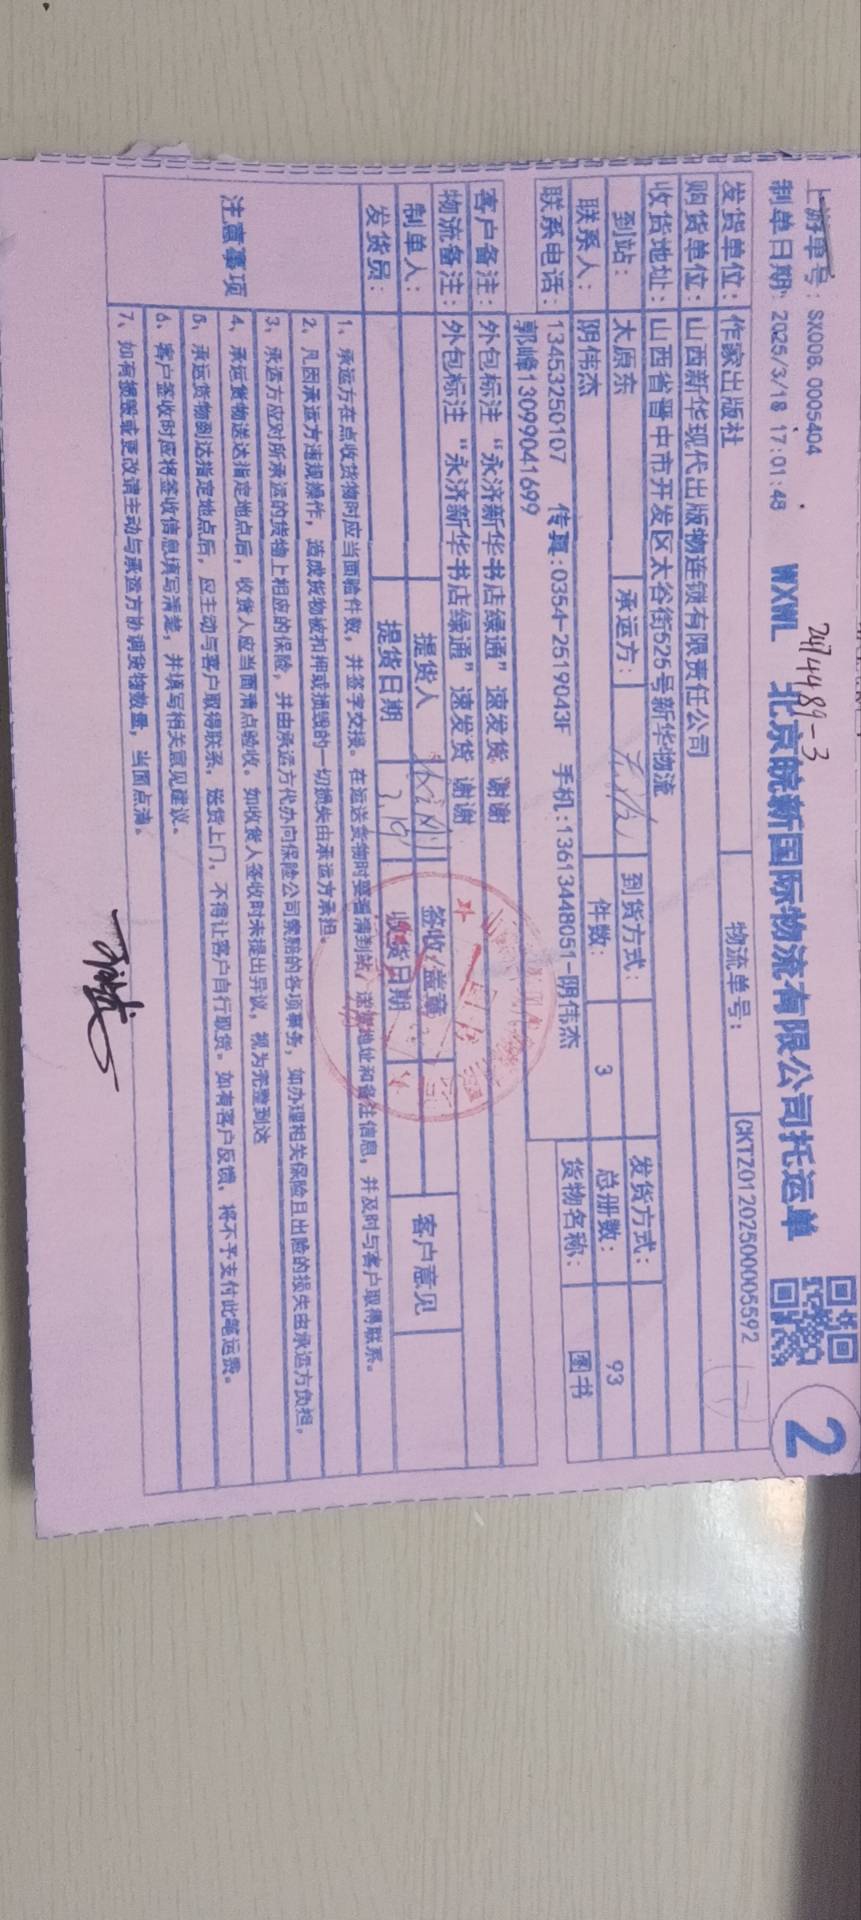 上游单号: SX008.0005404
2474489-3
制单日期: 2025/3/18 17:01:48
WXWL 北京皖新国际物流有限公司托运单
2
物流单号: CKTZ01202500005592
发货单位: 作家出版社
购货单位: 山西新华现代出版物连锁有限责任公司
收货地址: 山西省晋中市开发区太谷街525号新华物流
到站: 太原东 承运方: 到货方式: 发货方式:
联系人: 阴伟杰 件数: 3 总册数: 93
联系电话: 13453250107 传真:0354-2519043F 手机:13613448051-阴伟杰 货物名称: 图书
郭峰13099041699
客户备注: 外包标注“永济新华书店绿通”速发货 谢谢
物流备注: 外包标注“永济新华书店绿通”速发货 谢谢
制单人: 提货人 签收/盖章 客户意见
发货员: 提货日期 3.19 收货日期
注意事项
1、承运方在点收货物时应当面验件数，并签字交接。在运送货物时要看清到站/送货地址和备注信息，并及时与客户取得联系。
2、凡因承运方违规操作，造成货物被扣押或损毁的一切损失由承运方承担。
3、承运方应对所承运的货物上相应的保险，并由承运方代办向保险公司索赔的各项事务，如办理相关保险且出险的损失由承运方负担，
4、承运货物送达指定地点后，收货人应当面清点验收。如收货人签收时未提出异议，视为完整到达
5、承运货物到达指定地点后，应主动与客户取得联系，送货上门，不得让客户自行取货。如有客户反馈，将不予支付此笔运费。
6、客户签收时应将签收信息填写清楚，并填写相关意见建议。
7、如有损毁或更改请主动与承运方协调货物数量，当面点清。